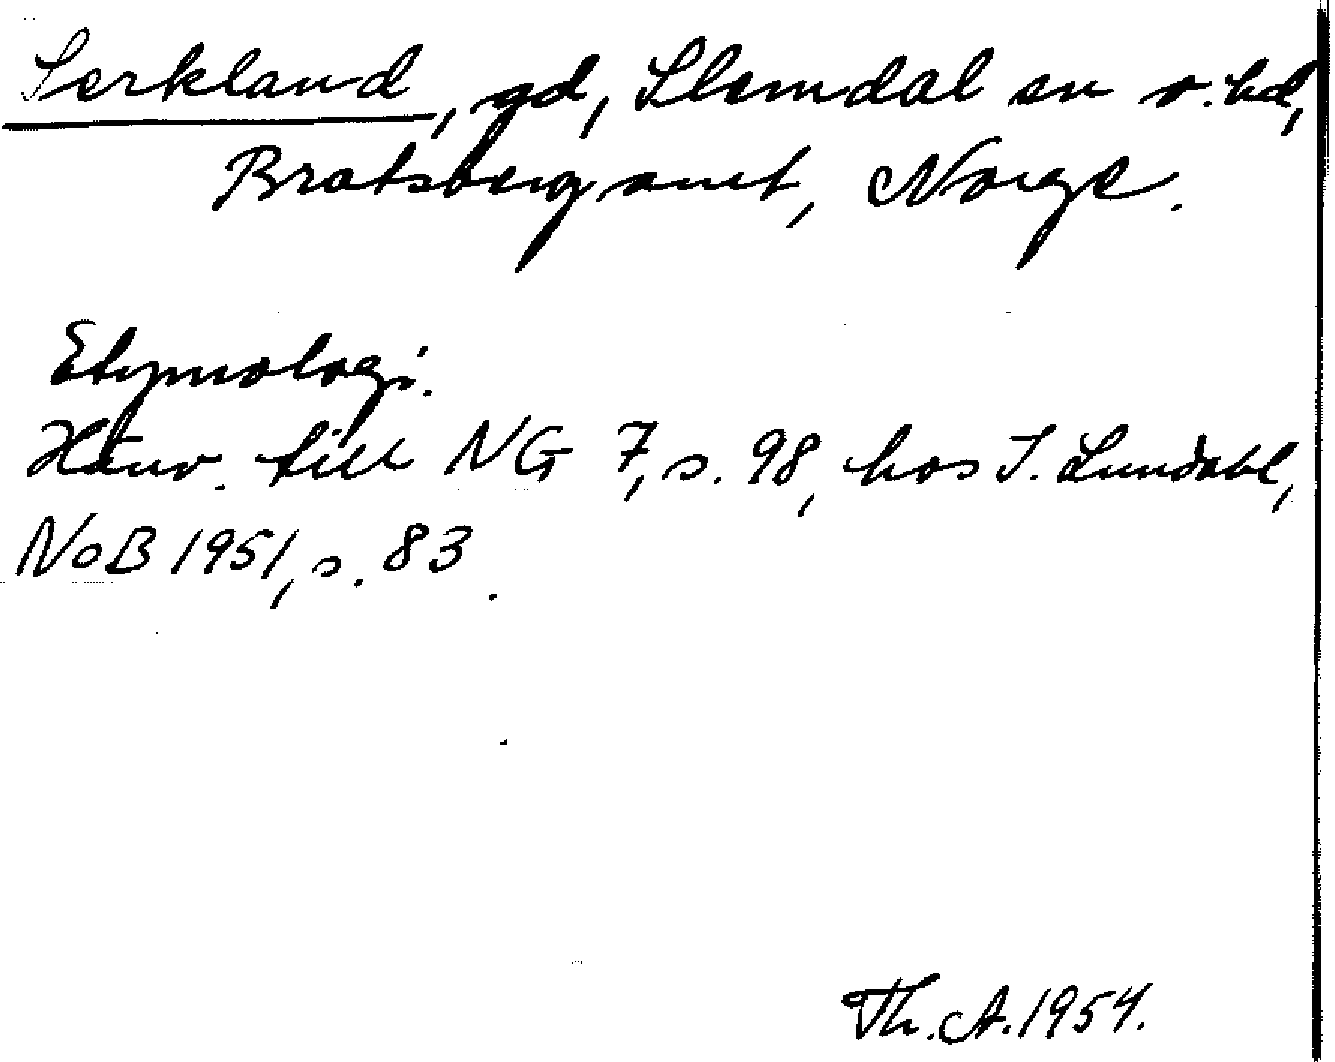 Serkland, gd, Slemdal sn o. hd,
Bratsberg amt, Norge.
Etymologi.
Hänv. till NG 7, s. 98, hos I. Lundahl,
NoB 1951, s. 83.
Th. A. 1954.